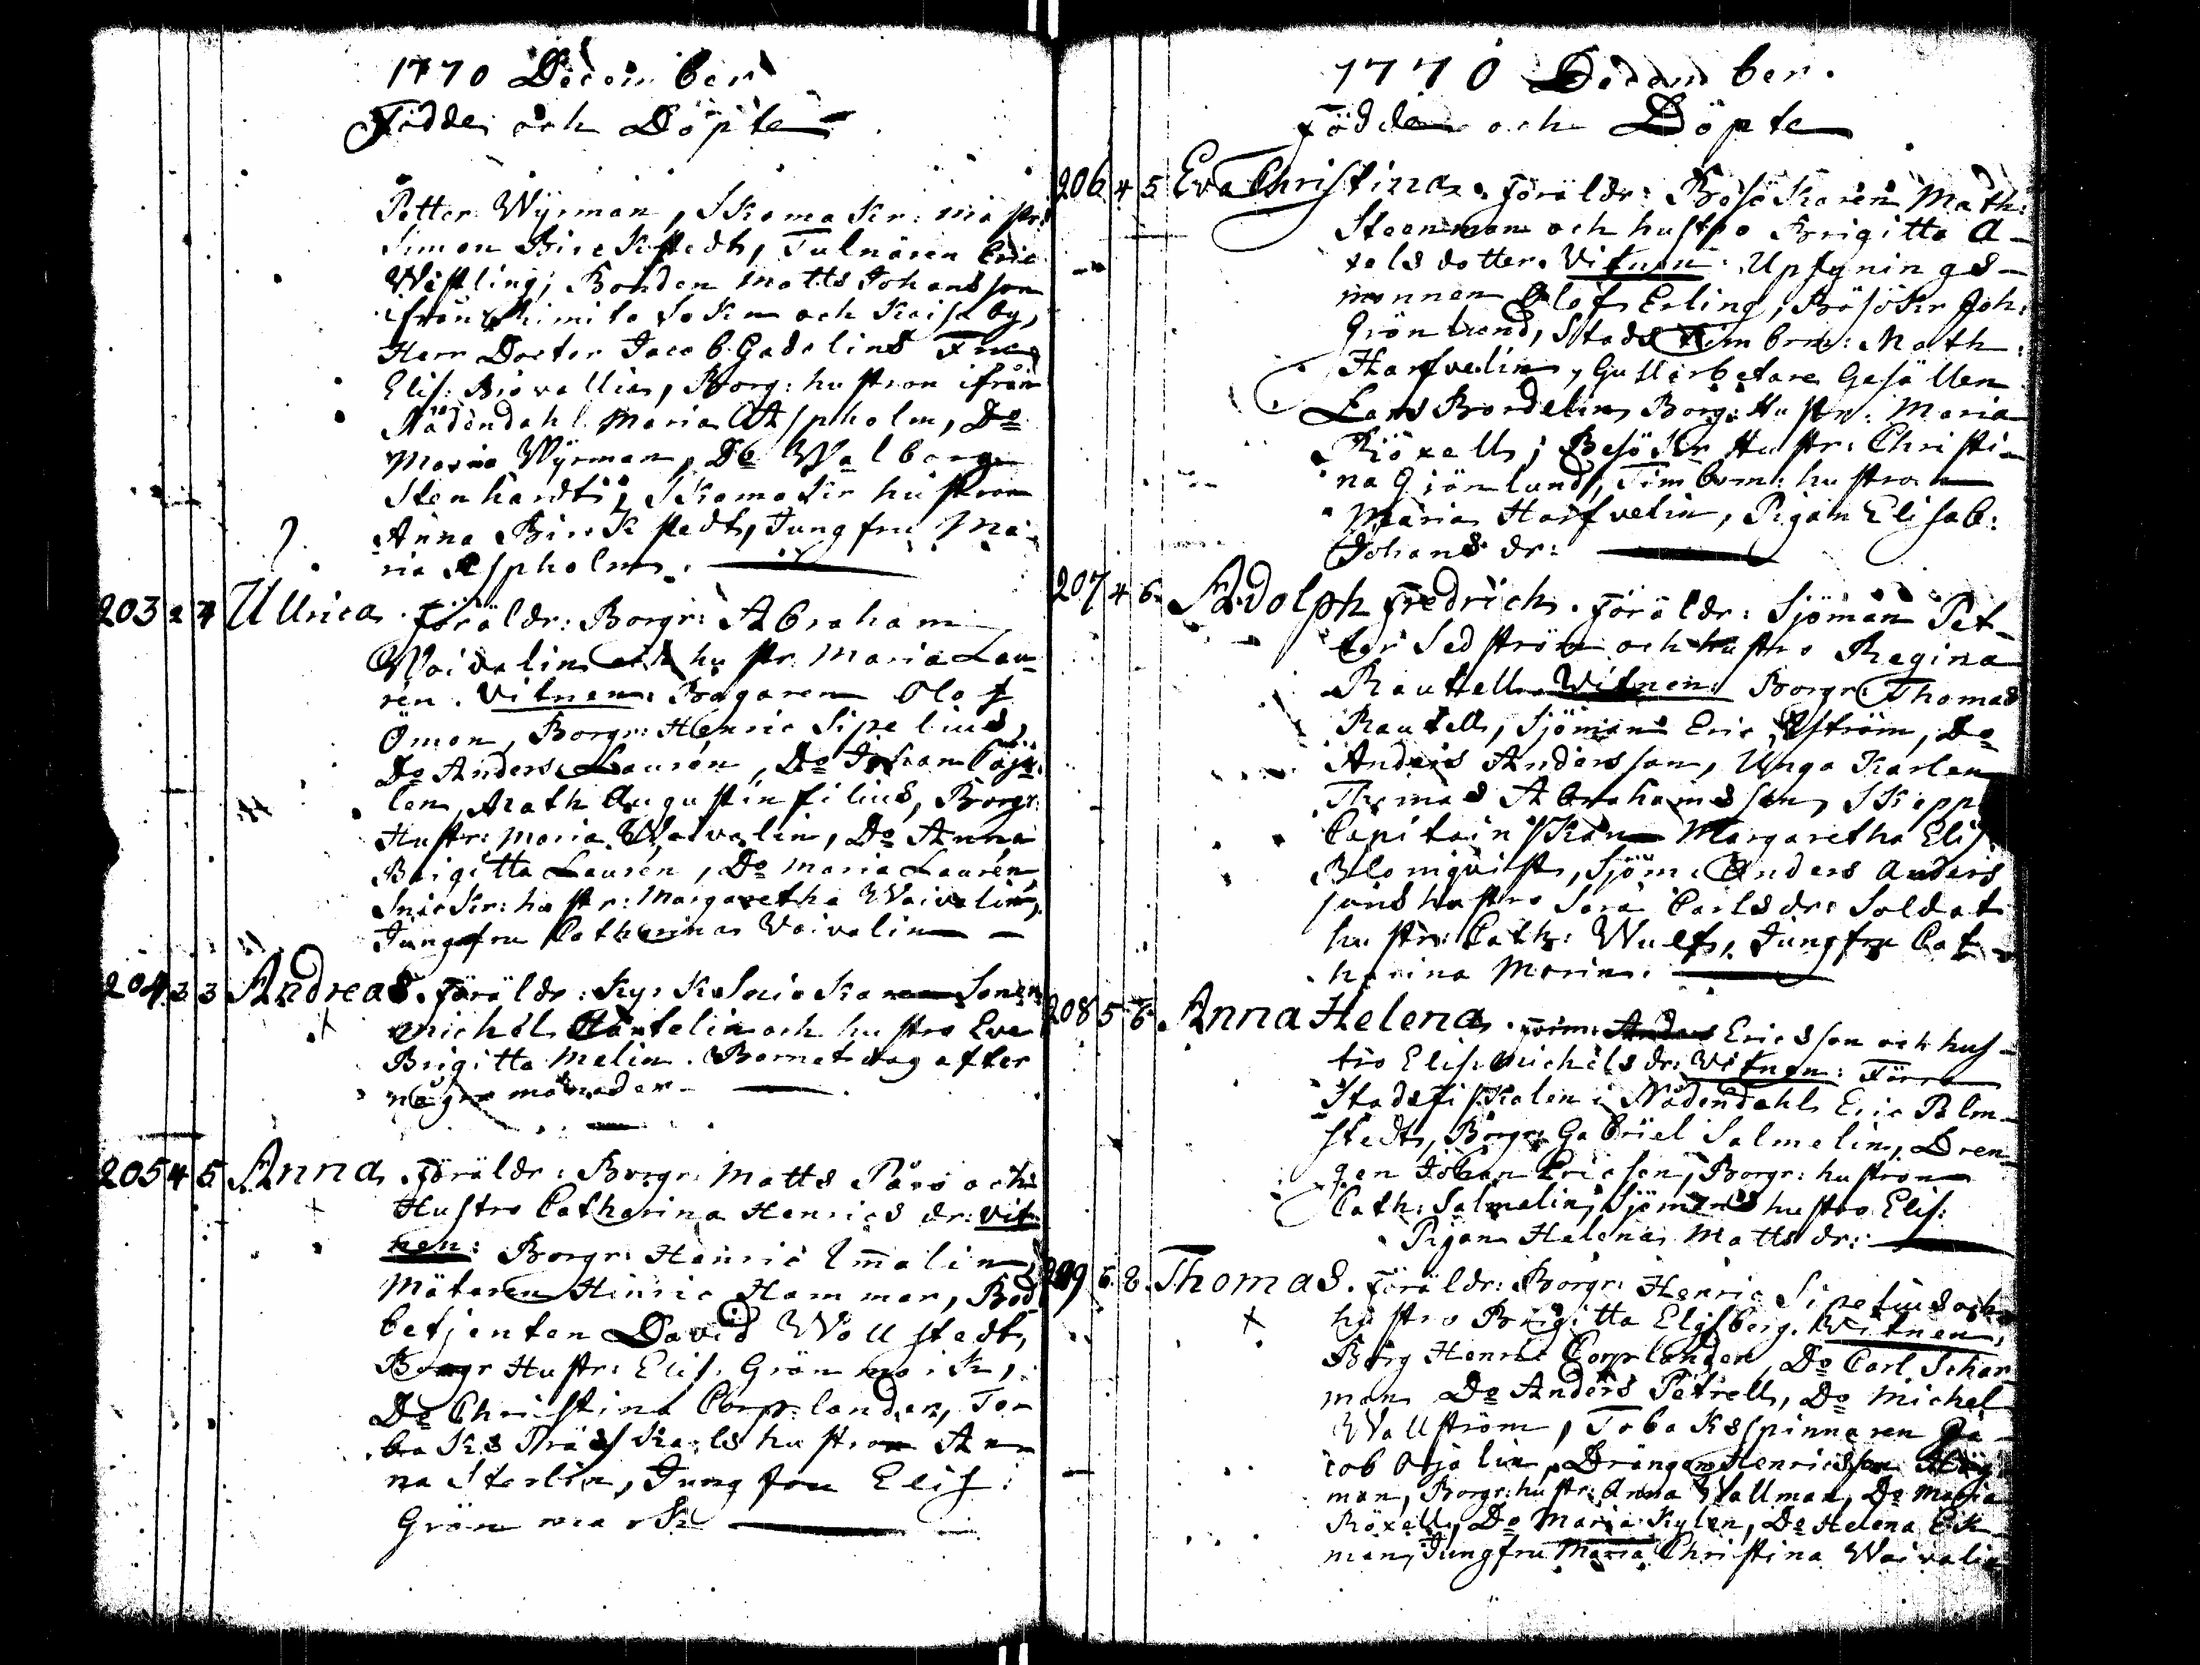 1770 December
Födde och Döpte
Petter Wyrman, Skomakr: mästr:
Simon Birckstedt, Tulnären Eric
Wistling, Bonden Matts Johansson
ifrån Kimito Sokn och Kaisa by,
Herr Doctor Jacob Gadolins Fru
Elis: Biovallia, Borg: hustron ifrån
Nådendahl Maria Aspholm, Do
Maria Wyrman, Do Walborg
Stenhardt, Skomakr hustron
Anna Birckstedt, Jungfru Ma-
ria Aspholm.
203 2 4 Ullrica. Föräldr: Borgr: Abraham
Waivalin och hustr. Maria Lau-
ren. Vitnen: Bagaren Olof
Öman, Borgr: Henric Sipelius,
Do Anders Laurén, Do Johan
len, Math Augustin filius, Borgr:
Hustr: Maria Waivalin, Do Anna
Brigitta Laurén, Do Maria Laurén,
Snickr: hustr: Margaretha Waivalin,
Jungfru Catharina Waivalin
204 3 3 Andreas. Föräldr: Kyrko Snickaren
Michel Cantelin och hustro Eva
Brigitta Melin. Barnet dog efter
några månader.
205 4 5 Anna. Föräldr: Borgr: Matts Pårs och
Hustro Catharina Henrics dr: Vit-
nen: Borgr: Henric Im̄alin,
Mätaren Hinric Hammar, Bod
betjenten David Wallstedt,
Borgr Hustr: Elis. Grönmark,
Do Christina Copp:landen, To-
baks Präss Karls hustron An-
na Sterlin, Jungfru Elis:
Grönmark
1770 December.
Födde och Döpte
206 4 5 Eva Christina. Föräldr: Besökaren Math:
Steenman och hustro Brigitta A-
xelsdotter. Vitnen: Upsynings-
mannen Olof Erling, Besökr Joh:
Grönlund, Stads Timbrm: Math:
Harfvelin, Gullarbetare Gesällen
Lars Bordelin, Borg: Hustr: Maria
Röxell, Besökr Hustr: Christi-
na Grönlund, Timbrm: hustron
Maria Harfvelin, Pigan Elisab:
Johans dr:
207 4 6 Adolph Fredrich. Föräldr: Sjöman Pet-
ter Sedström och hustro Regina
Rautell. Vitnen: Borgr: Thomas
Rautell, Sjöman Eric Åström, Do
Anders Andersson, Unga Karlen
Thomas Abrahamsson, Skepps
Capitainskan Margaretha Elis
Blomqvist, Sjöm: Anders Anders
sons hustro Sara Carlsdr: Soldat
hustr: Cath: Wulf, Jungfru Cat-
harina Morin.
208 5 6 Anna Helena. Föräldr: Anders Ericsson och hus-
tro Elis. Michels dr: Vitnen: Förra
Stadsfiskalen i Nådendahl Eric Palm-
stedt, Borgr: Gabriel Salmelin, Dren-
gen Johan Ericson, Borgr: hustron
Cath: Salmelin, Sjömans hustro Elis:
Pigan Helena Matts dr:
209 6 8 Thomas. Föräldr: Borgr: Henric Sipelius och
hustro Brigitta Elgsberg. Vitnen:
Borg Henric Copp:landen, Do Carl Schar
man Do Anders Petrell, Do Michel
Wallström, Tobakspinnaren Ja-
cob Ojalin, Drängen Henricsson
man, Borgr: hustr: Anna Wallman, Do Maria
Röxell, Do Maria Kylen, Do Helena Ek
man, Jungfru Maria Christina Waivalin